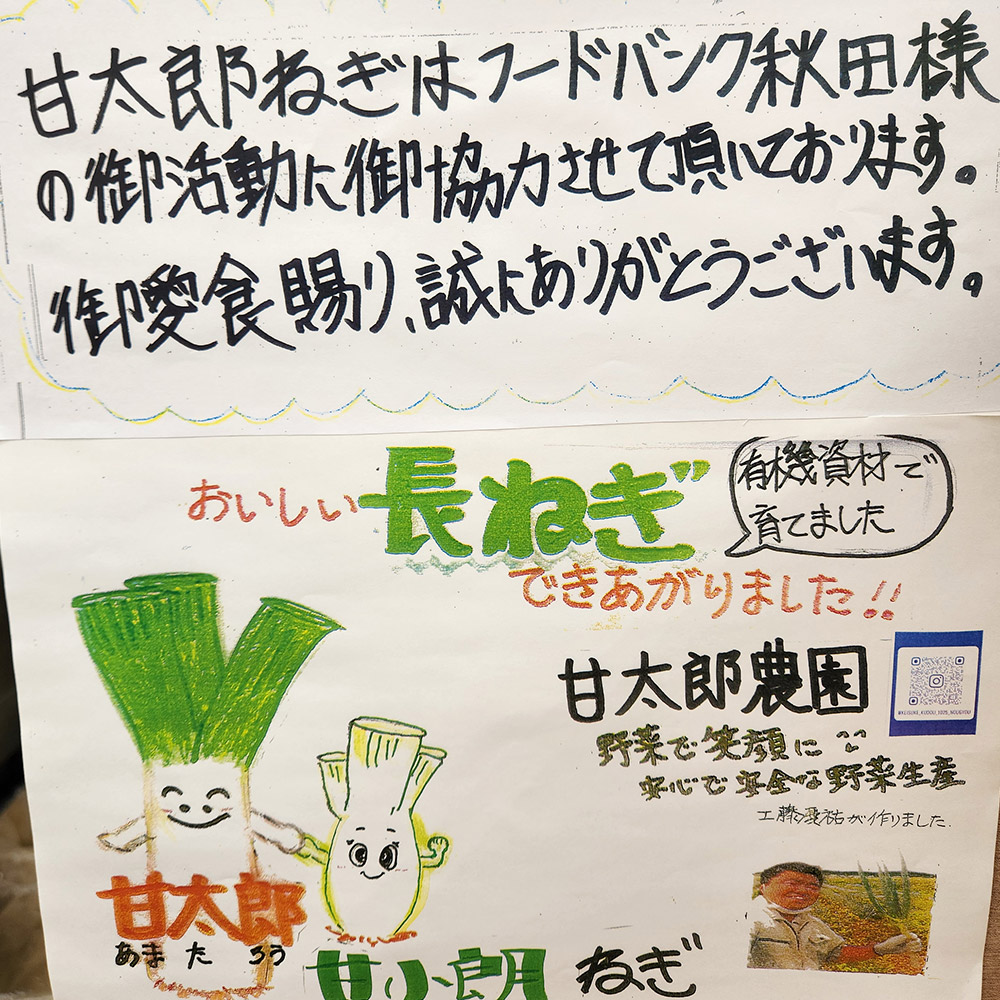 甘太郎ねぎはフードバンク秋田様
の御活動に御協力させて頂いております。
御愛食賜り、誠にありがとうございます。
おいしい長ねぎ
有機資材で
育てました
できあがりました!!
甘太郎農園
野菜で笑顔に
安心で安全な野菜生産
が作りました.
甘太郎
あまたろう
ねぎ